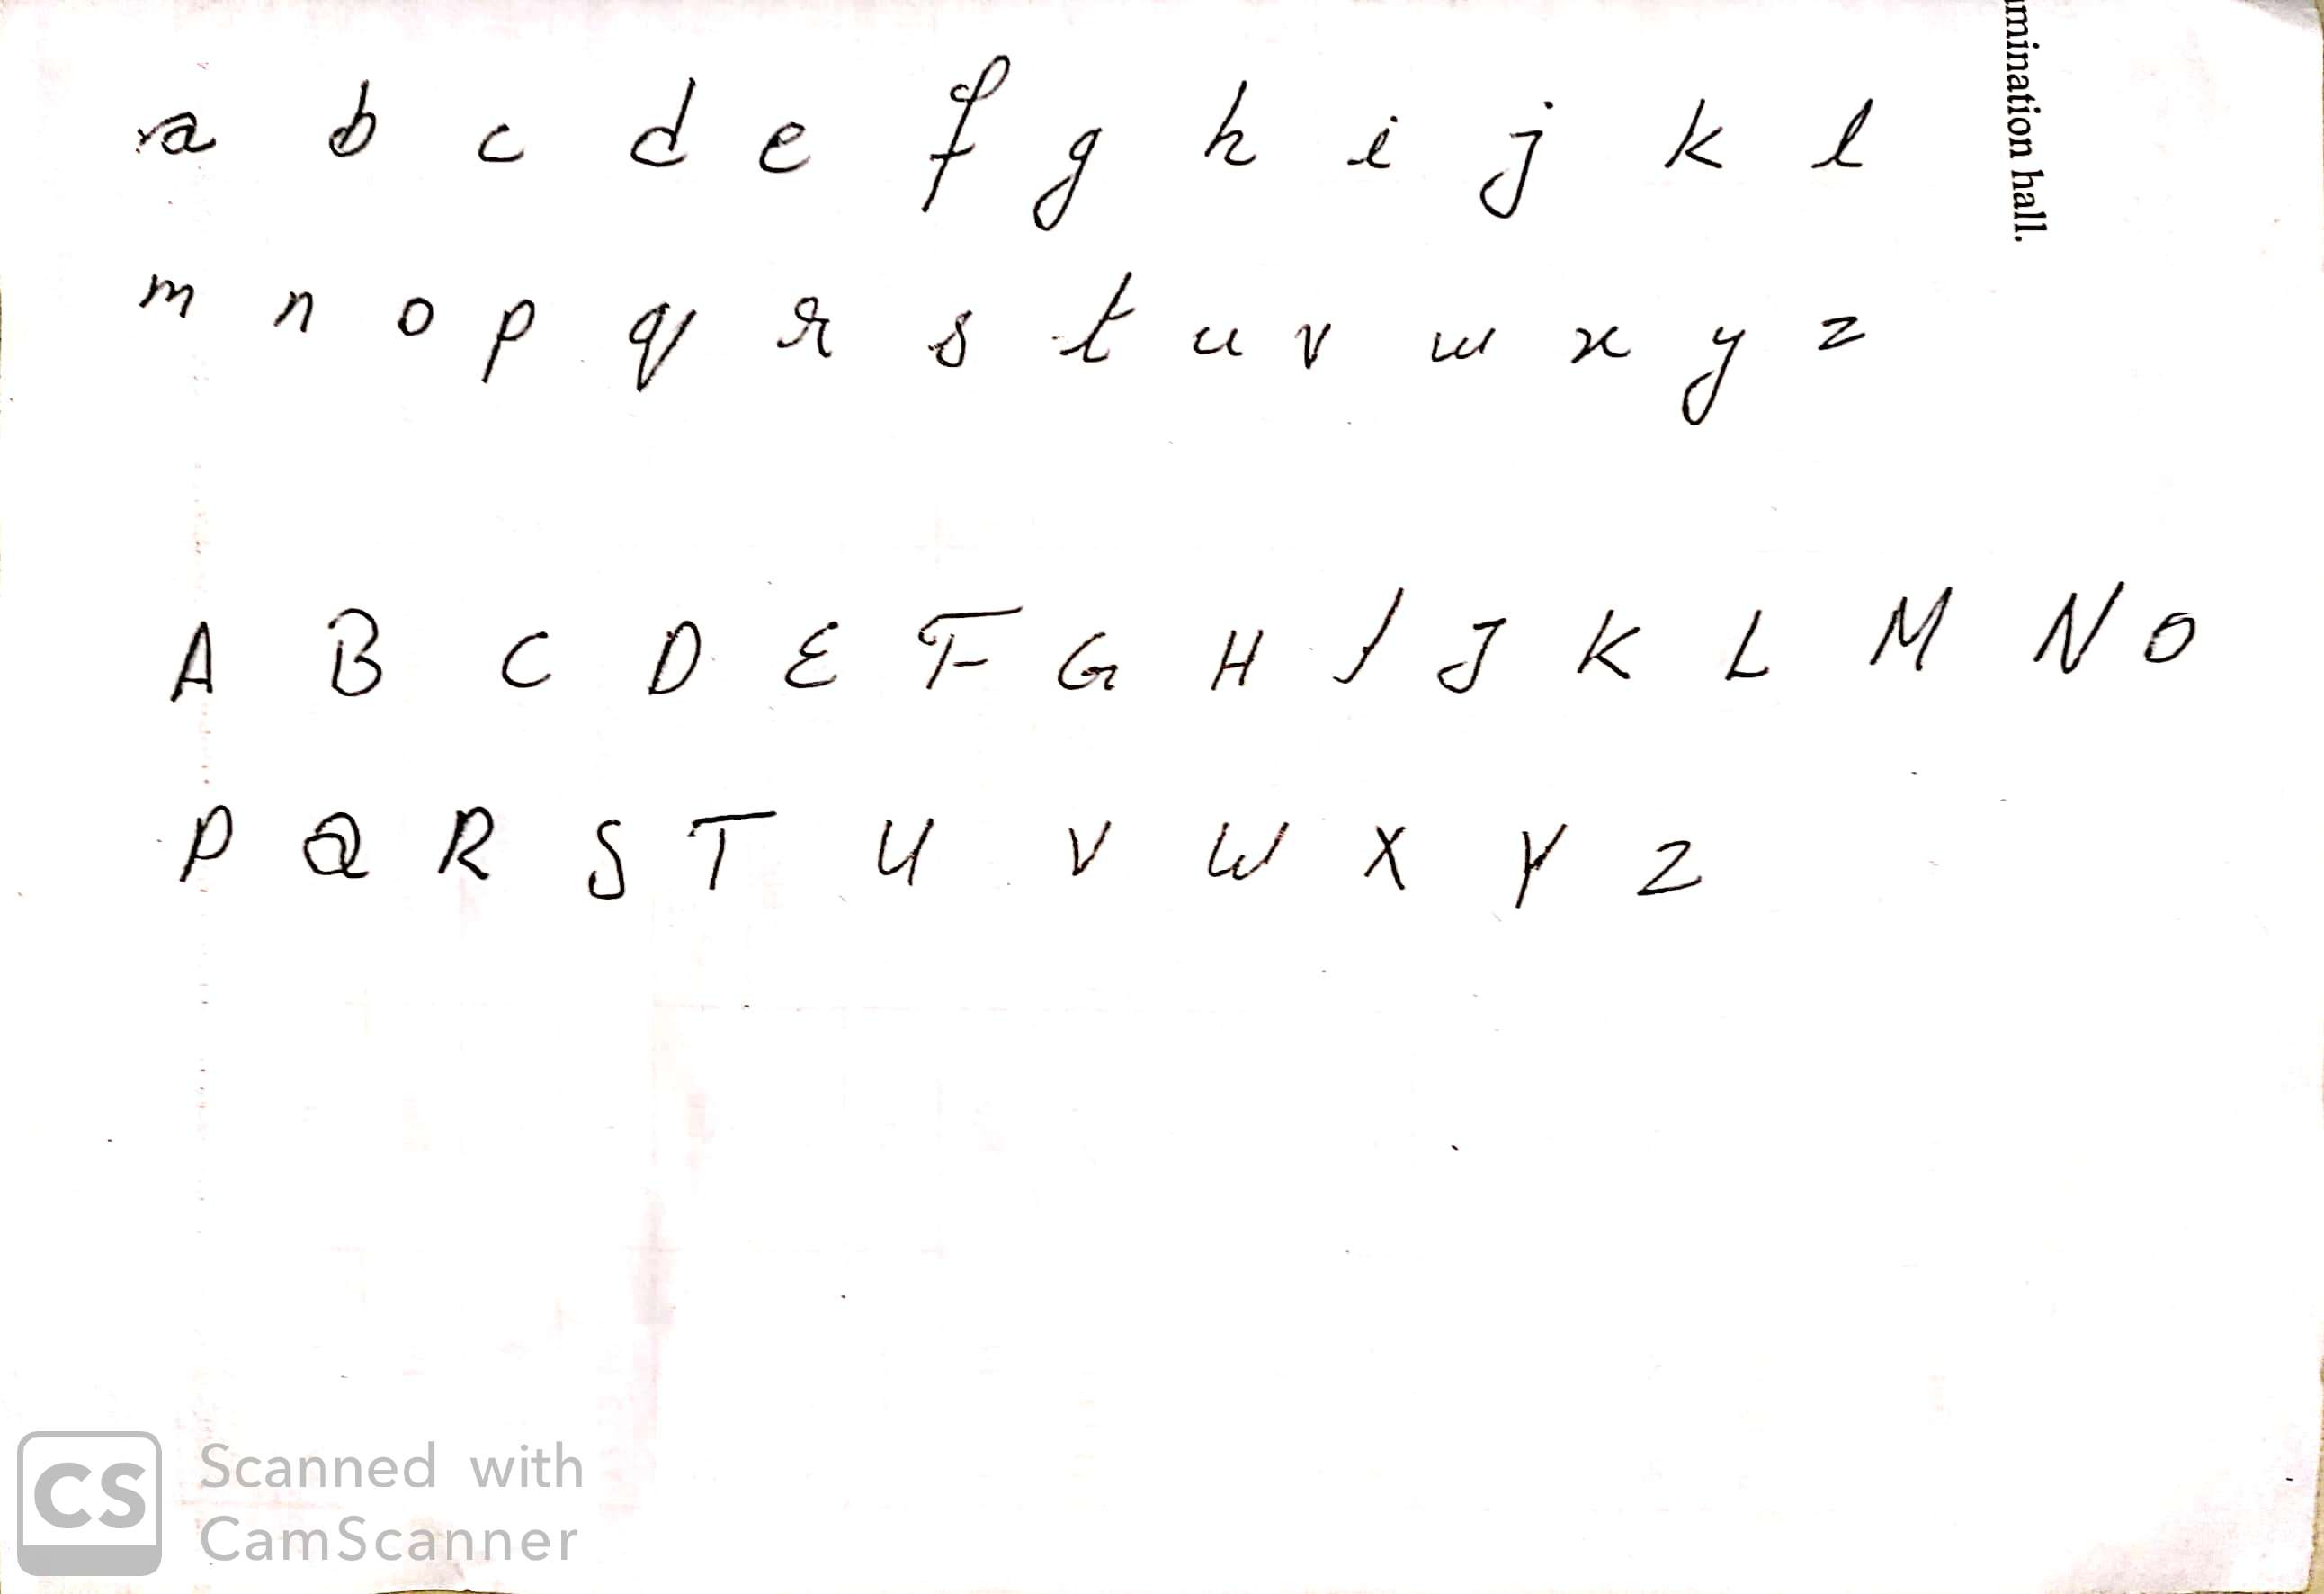 a b c d e f g h i j k l
m n o p q r s t u v w x y z
A B C D E F G H I J K L M N O
P Q R S T U V W X Y Z
mination hall.
CS Scanned with
CamScanner